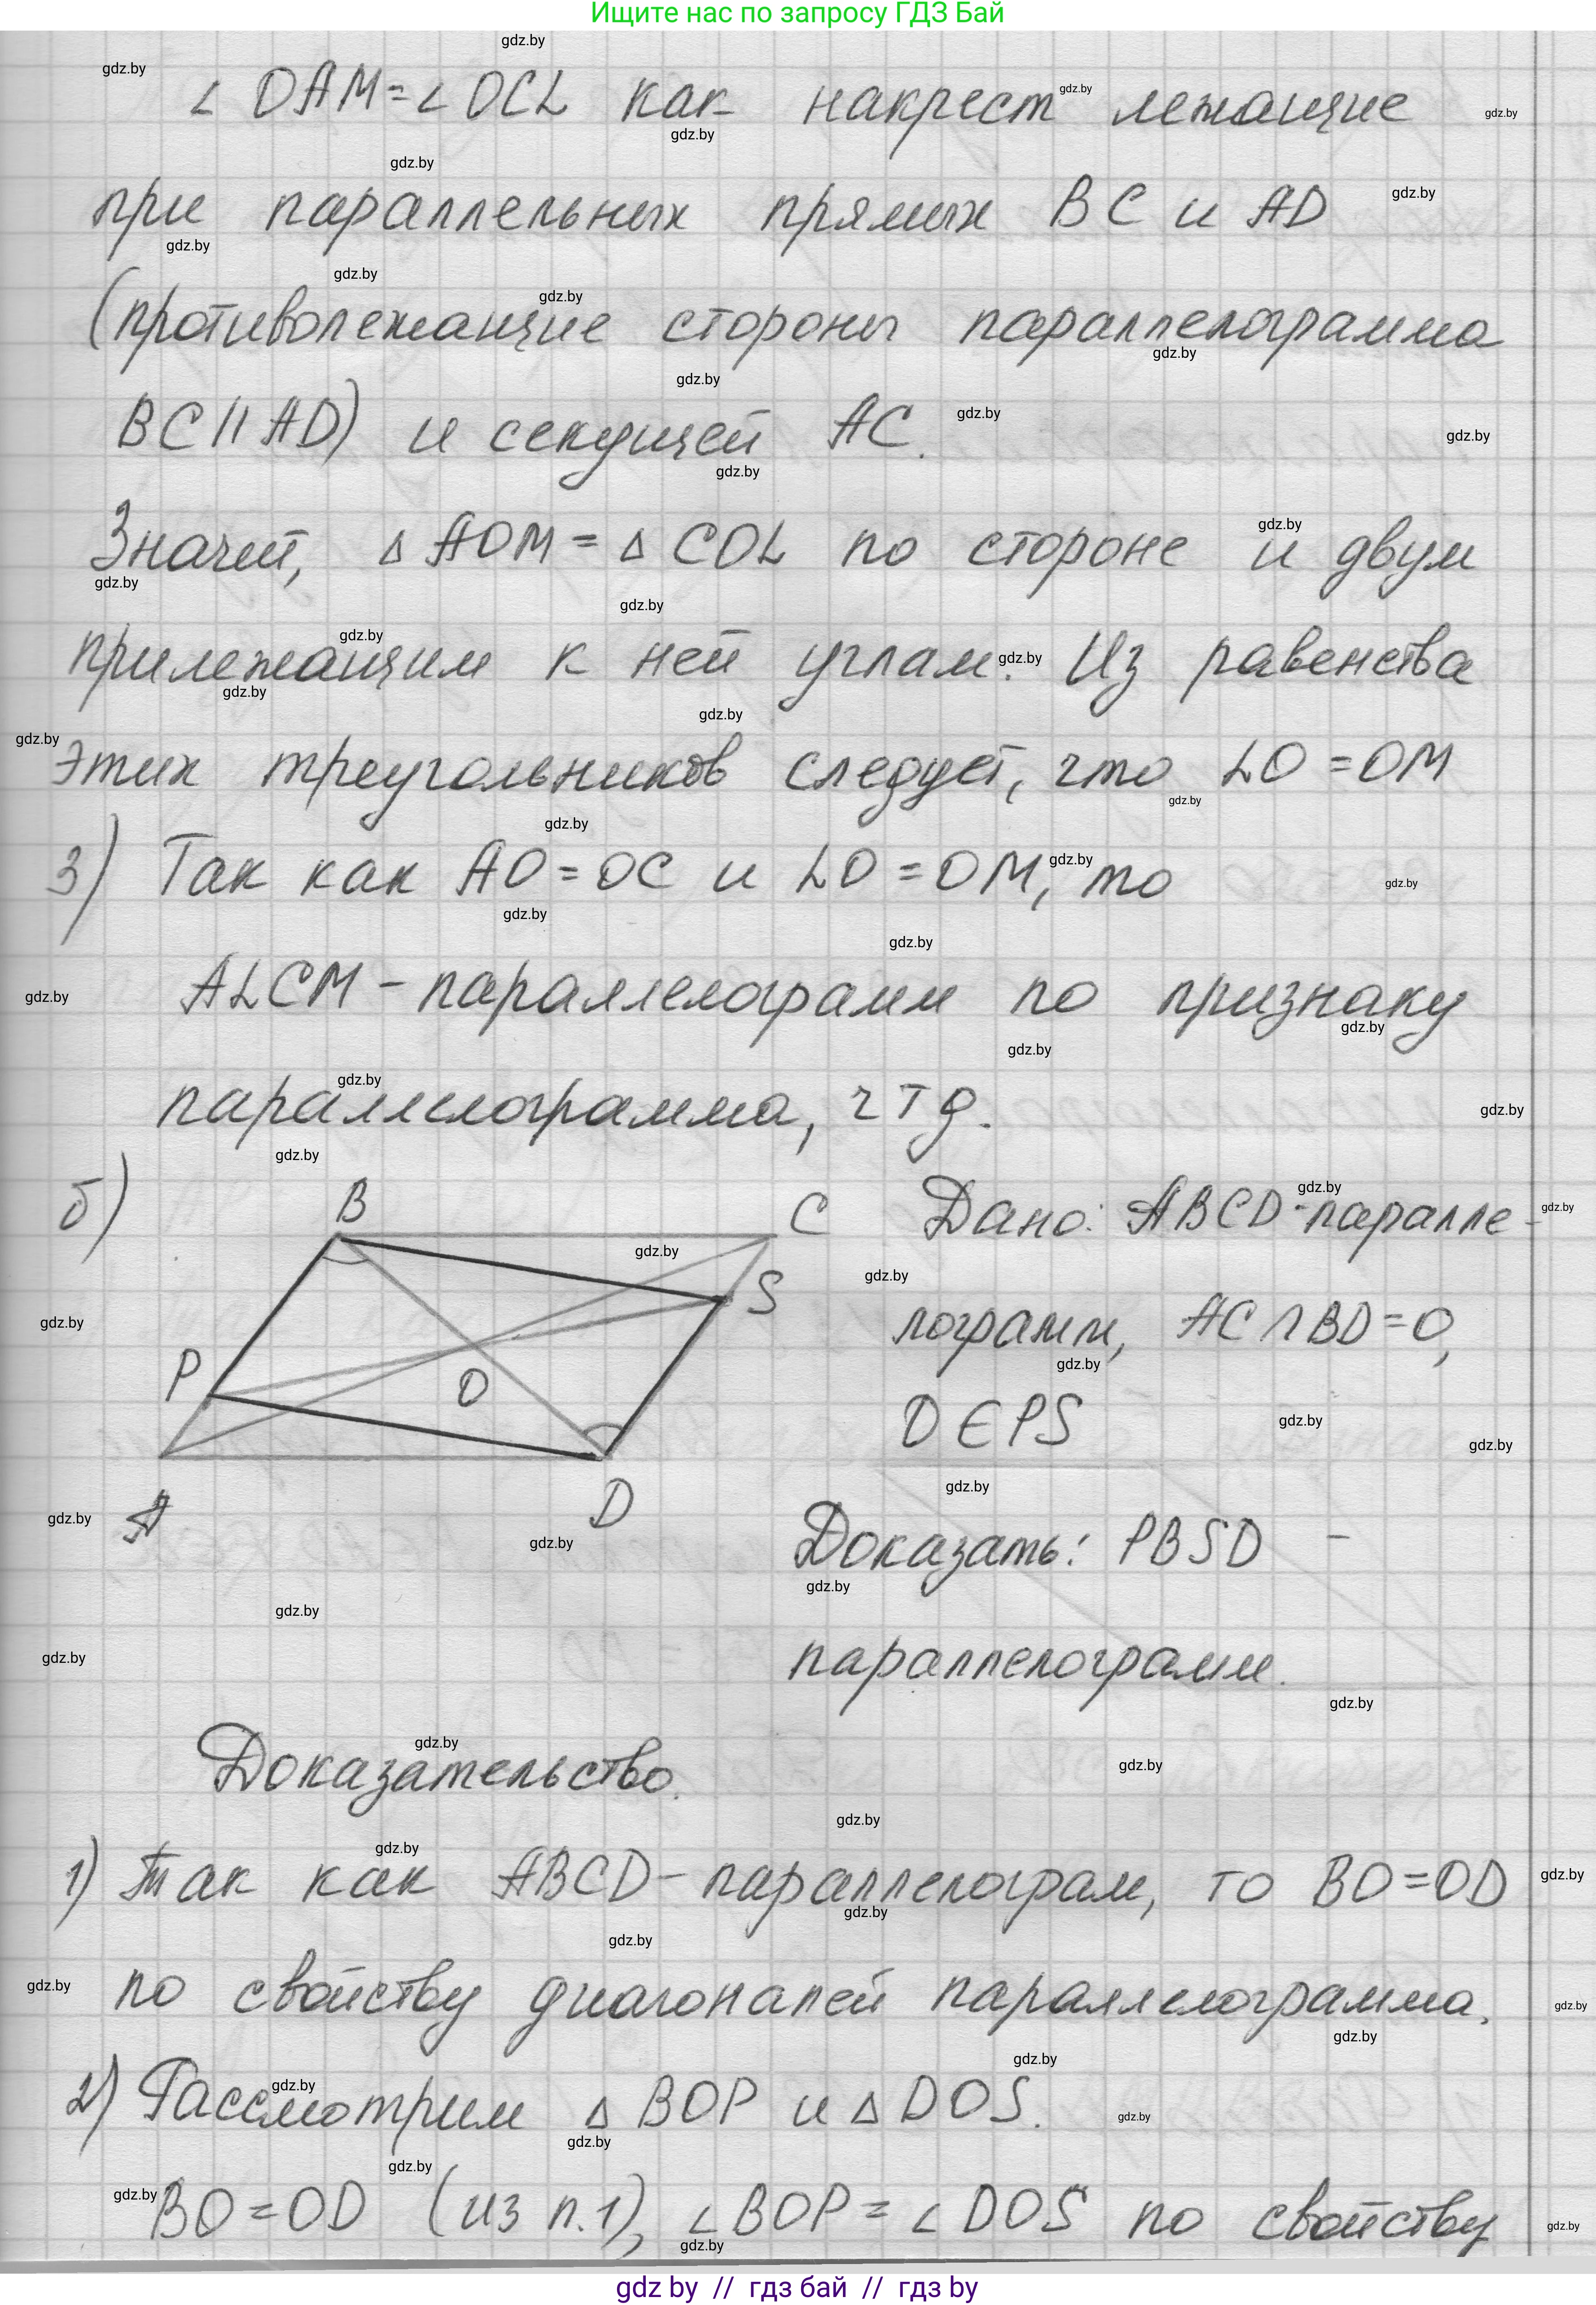 Ищите нас по запросу ГДЗ Бай
∠ OAM = ∠ OCL как накрест лежащие
при параллельных прямых BC и AD
(противолежащие стороны параллелограмма
BC || AD) и секущей AC.
Значит, △ AOM = △ COL по стороне и двум
прилежащим к ней углам. Из равенства
этих треугольников следует, что LO = OM
3) Так как AO = OC и LO = OM, то
ALCM - параллелограмм по признаку
параллелограмма, ч т д.
б)
B
C
S
P
O
A
D
Дано: ABCD - паралле-
лограмм, AC ∩ BD = O,
O ∈ PS
Доказать: PBSD -
параллелограмм.
Доказательство.
1) Так как ABCD - параллелограм, то BO = OD
по свойству диагоналей параллелограмма.
2) Рассмотрим △ BOP и △ DOS.
BO = OD (из п.1), ∠ BOP = ∠ DOS по свойству
gdz by // гдз бай // гдз by